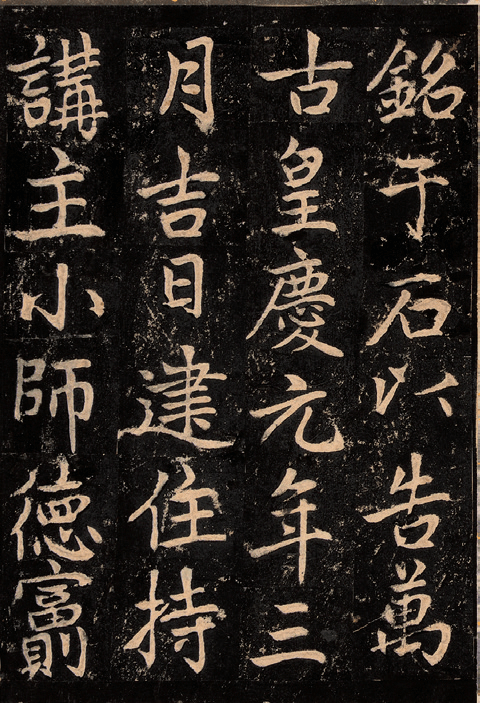 銘于石以告萬
古皇慶元年三
月吉日建住持
講主小師德